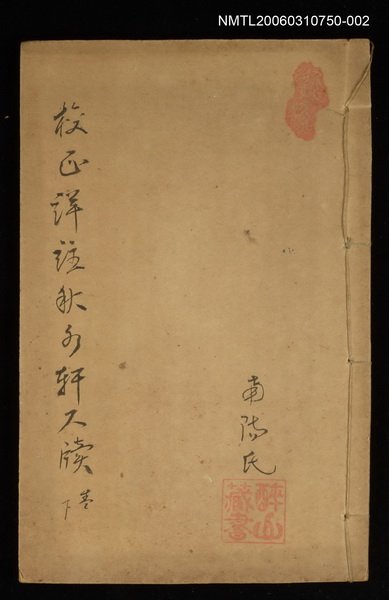 NMTL20060310750-002
校正詳註秋水軒尺牘 卷下
南陽氏
醉山藏書